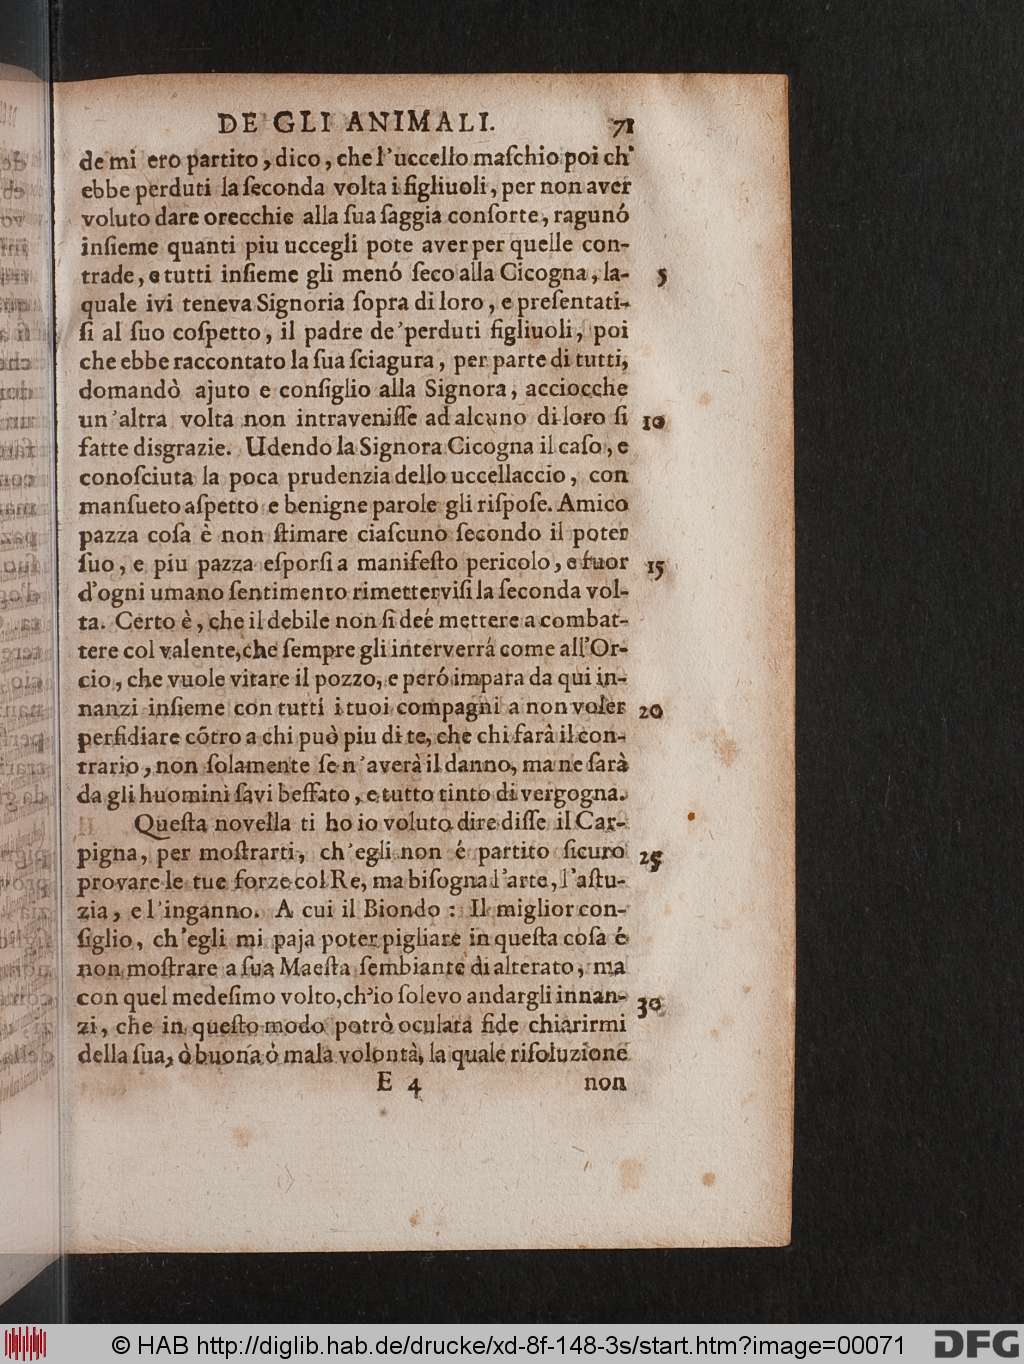 DE GLI ANIMALI. 71
de mi ero partito, dico, che l'uccello maſchio poi ch'
ebbe perduti la ſeconda volta i figliuoli, per non aver
voluto dare orecchie alla ſua ſaggia conſorte, ragunó
inſieme quanti piu uccegli pote aver per quelle con-
trade, e tutti inſieme gli menó ſeco alla Cicogna, la- 5
quale ivi teneva Signoria ſopra di loro, e preſentati-
ſi al ſuo coſpetto, il padre de' perduti figliuoli, poi
che ebbe raccontato la ſua ſciagura, per parte di tutti,
domandò ajuto e conſiglio alla Signora, acciocche
un'altra volta non intraveniſſe ad alcuno di loro ſi 10
fatte disgrazie. Udendo la Signora Cicogna il caſo, e
conoſciuta la poca prudenzia dello uccellaccio, con
manſueto aſpetto e benigne parole gli riſpoſe. Amico
pazza coſa è non ſtimare ciaſcuno ſecondo il poter
ſuo, e piu pazza eſporſi a manifeſto pericolo, e fuor 15
d'ogni umano ſentimento rimettervi ſi la ſeconda vol-
ta. Certo è, che il debile non ſi deé mettere a combat-
tere col valente, che ſempre gli interverrá come all'Or-
cio, che vuole vitare il pozzo, e peró impara da qui in-
nanzi inſieme con tutti i tuoi compagni a non voler 20
perfidiare cõtro a chi può piu di te, che chi farà il con-
trario, non ſolamente ſe n'averà il danno, ma ne ſarà
da gli huomini ſavi beffato, e tutto tinto di vergogna.
Queſta novella ti ho io voluto dire diſſe il Car-
pigna, per moſtrarti, ch'egli non é partito ſicuro 25
provare le tue forze col Re, ma biſogna l'arte, l'aſtu-
zia, e l'inganno. A cui il Biondo : Il miglior con-
ſiglio, ch'egli mi paja poter pigliare in queſta coſa é
non moſtrare a ſua Maeſta ſembiante di alterato, ma
con quel medeſimo volto, ch'io ſolevo andargli innan- 30
zi, che in queſto modo potrò oculata fide chiarirmi
della ſua, ò buona ò mala volontà, la quale riſoluzione
E 4 non
© HAB http://diglib.hab.de/drucke/xd-8f-148-3s/start.htm?image=00071
DFG